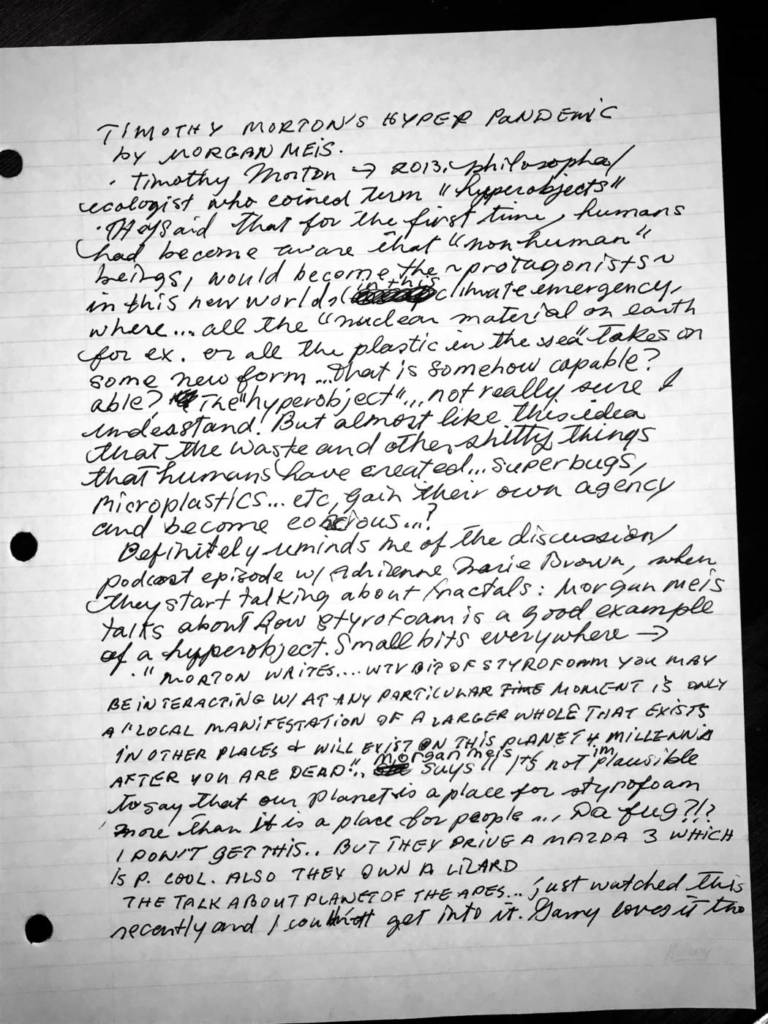 TIMOTHY MORTON'S HYPER PANDEMIC
by MORGAN MEIS.
· Timothy Morton → 2013. philosopher/
ecologist who coined term "hyperobjects"
· They said that for the first time, humans
had become aware that "non-human"
beings, would become the ~protagonists~
in this new world (in this climate emergency,
where... all the "nuclear material on earth
for ex. or all the plastic in the sea" takes on
some new form... that is somehow capable?
able? The "hyperobject"... not really sure I
understand! But almost like this idea
that the waste and other shitty things
that humans have created... superbugs,
microplastics... etc, gain their own agency
and become conscious...?
Definitely reminds me of the discussion/
podcast episode w/ Adrienne Marie Brown, when
they start talking about fractals: Morgan Meis
talks about how styrofoam is a good example
of a hyperobject. Small bits everywhere →
· "MORTON WRITES.... WTV BIT OF STYROFOAM YOU MAY
BE INTERACTING W/ AT ANY PARTICULAR TIME MOMENT IS ONLY
A "LOCAL MANIFESTATION OF A LARGER WHOLE THAT EXISTS
IN OTHER PLACES & WILL EXIST ON THIS PLANET 4 MILLENNIA
AFTER YOU ARE DEAD".. morgan meis says "It's not implausible
to say that our planet is a place for styrofoam
more than it is a place for people... Da fuq?!?
I DON'T GET THIS.. BUT THEY DRIVE A MAZDA 3 WHICH
IS P. COOL. ALSO THEY OWN A LIZARD
THE TALK ABOUT PLANET OF THE APES... just watched this
recently and I couldn't get into it. Garry loves it tho